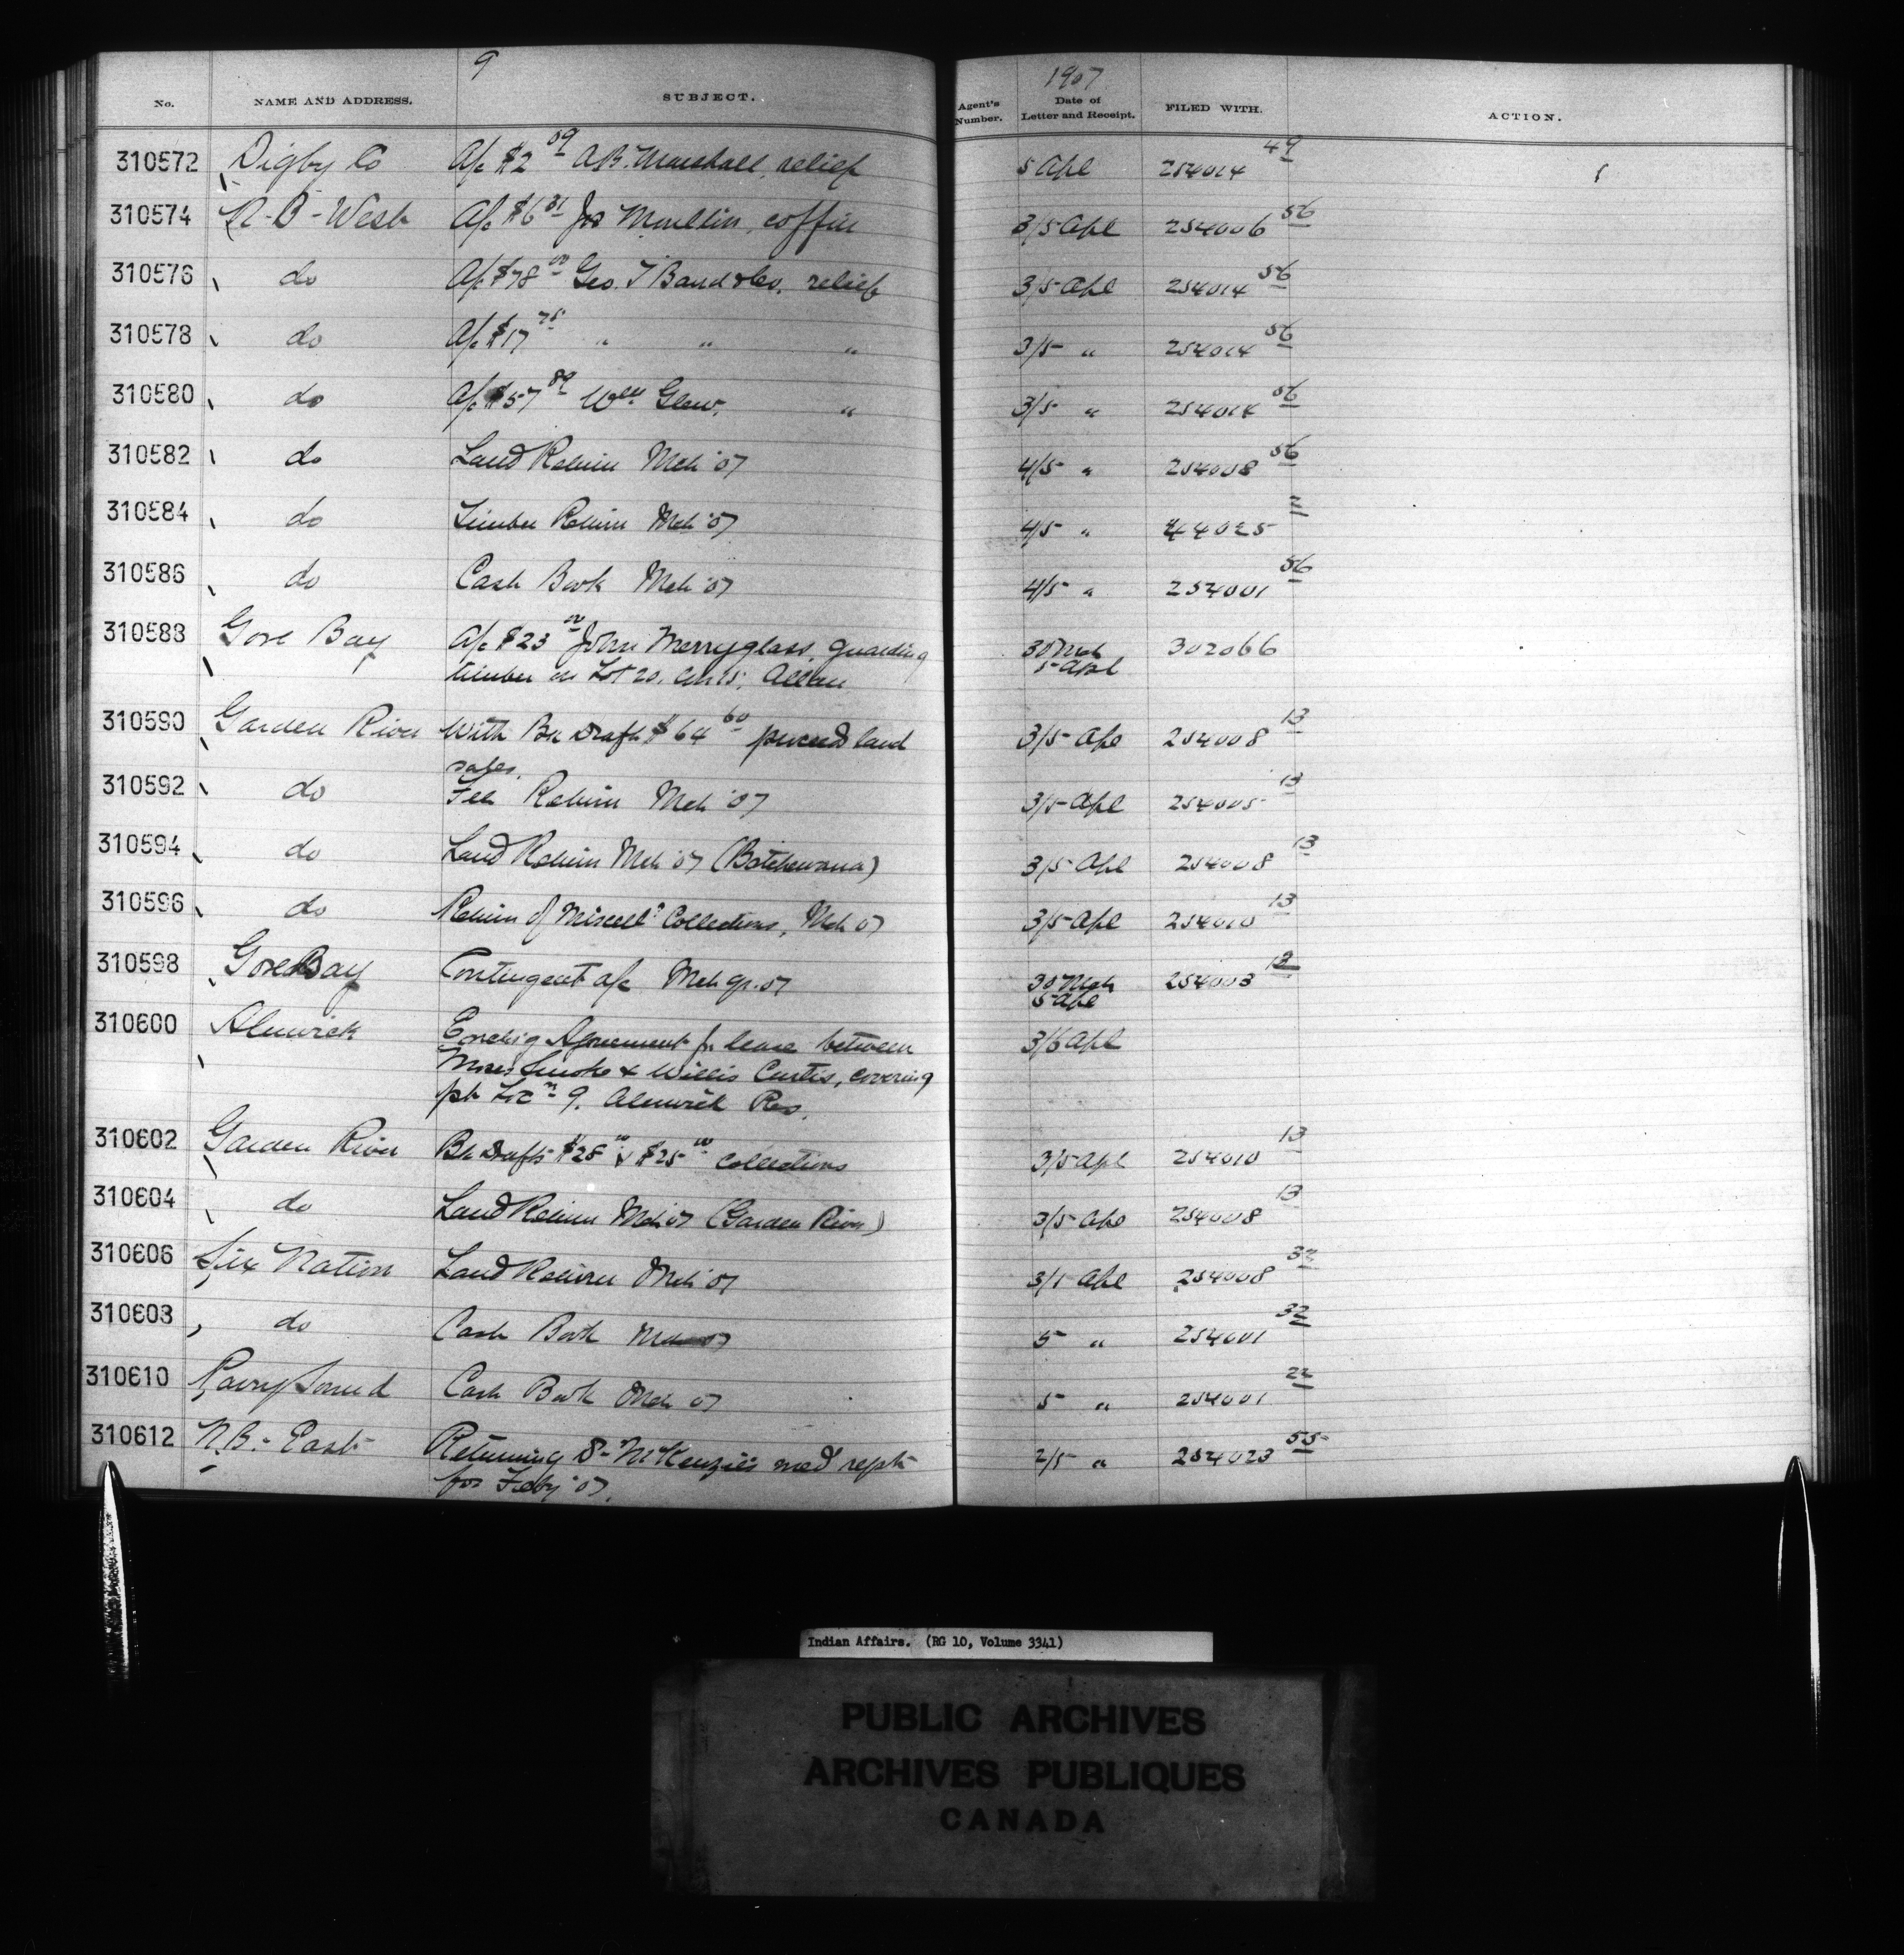 9
1907
No. NAME AND ADDRESS. SUBJECT. Agent's Number. Date of Letter and Receipt. FILED WITH. ACTION.
310572 Digby Co A/c $2 09 A.B. Marshall, relief 5 Apl 254014 49
310574 N-B-West A/c $6 31 Jos Moullin, coffin 3/5 Apl 254006 56
310576 do A/c $78 00 Geo. T Baird & Co. relief 3/5 Apl 254014 56
310578 do A/c $17 75 " " " 3/5 " 254014 56
310580 do A/c $57 89 Wm Glew. " 3/5 " 254014 56
310582 do Land Return Mch '07 4/5 " 254008 56
310584 do Timber Return Mch '07 4/5 " 44025 2
310586 do Cash Book Mch '07 4/5 " 254001 56
310588 Gore Bay A/c $23 00 John Merryglass, guarding 30 Mch 302066
timber on Lot 20, Con 15, Allan 5 Apl
310590 Garden River With Bk Draft $64 60 proceed land 3/5 Apl 254008 13
sales.
310592 do Fee Return Mch '07 3/5 Apl 254005 13
310594 do Land Return Mch '07 (Batchewana) 3/5 Apl 254008 13
310596 do Return of Miscell. Collections, Mch 07 3/5 Apl 254010 13
310598 Gore Bay Contingent a/c Mch qr. 07 30 Mch 254003 12
5 Apl
310600 Alnwick Enclg Agreement for lease between 3/6 Apl
Moses Smoke & Willis Curtis, covering
pt Locn 9. Alnwick Res.
310602 Garden River Bk Drafts $28 & $25 00 Collections 3/5 Apl 254010 13
310604 do Land Return Mch 07 (Garden River) 3/5 Apl 254008 13
310606 Six Nation Land Return Mch '07 3/1 Apl 254008 32
310608 do Cash Book Mch 07 5 " 254001 32
310610 Parry Sound Cash Book Mch 07 5 " 254001 22
310612 N.B.- East Returning D- McKenzie's med rept 2/5 " 254023 55
for Feby '07.
Indian Affairs. (RG 10, Volume 3341)
PUBLIC ARCHIVES
ARCHIVES PUBLIQUES
CANADA